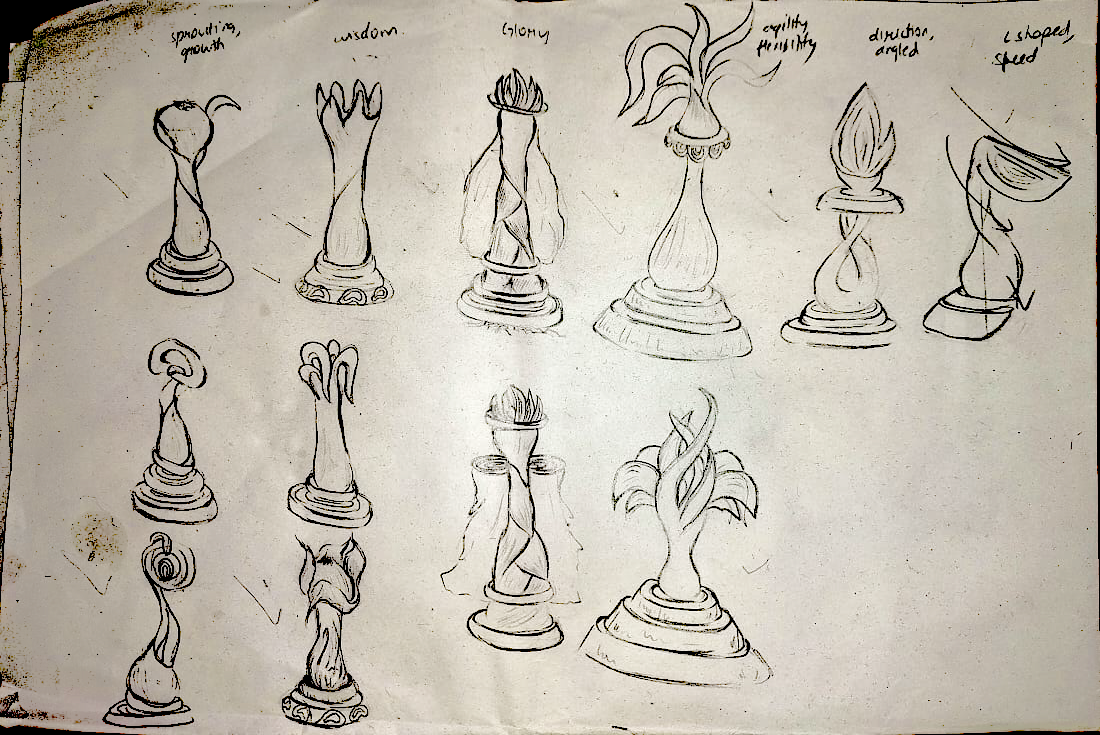 sprouting,
growth
wisdom
Glory
agility
flexibility
direction,
angled
L shaped,
speed